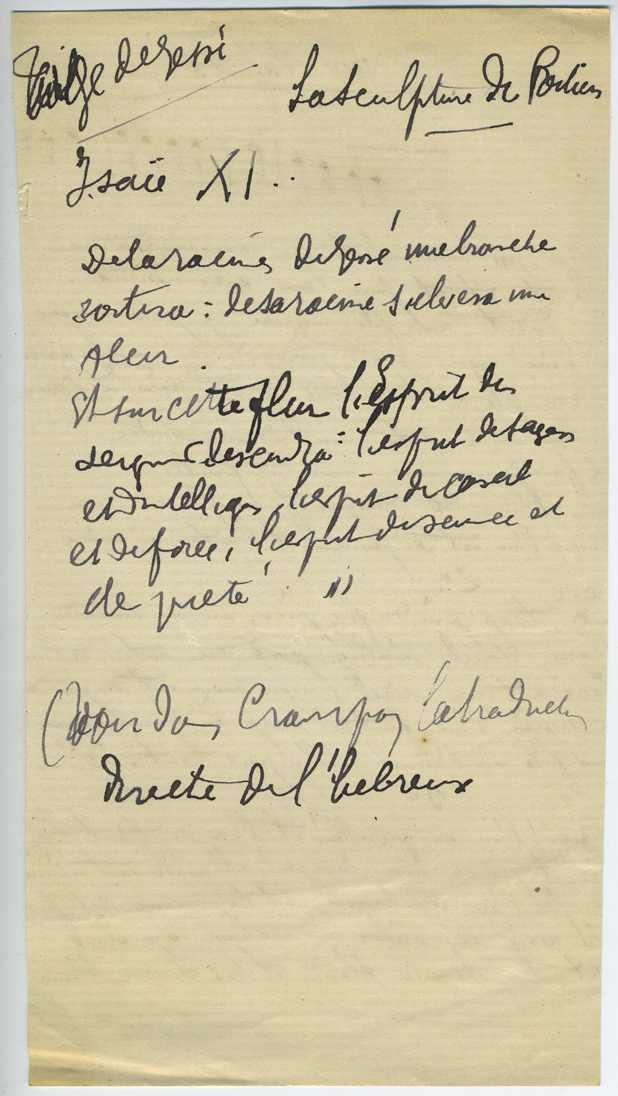 Tige de Jessé
La sculpture de Poitiers
Isaïe XI..
De la racine de Jessé une branche
sortira : de sa racine s'elvera une
fleur.
Et sur cette fleur l'Esprit du
Seigneur descendra : l'esprit de sagesse
et d'intelligence, l'esprit de conseil
et de force, l'esprit de science et
de piété "
(Voir dans Crampon la traduction
directe de l'hébreux